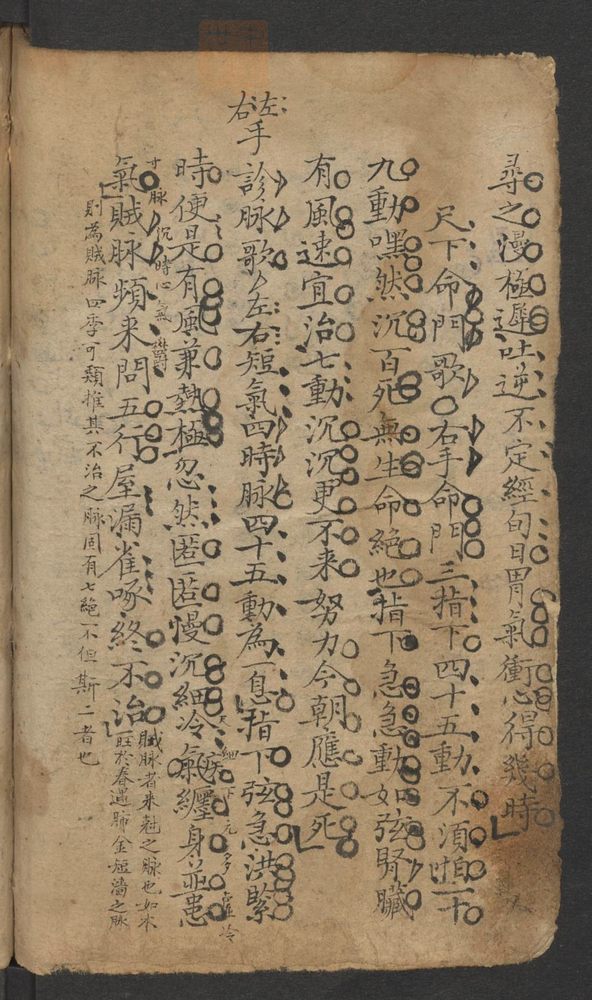 尋之漫極遲吐逆不定經旬日胃氣衝心得幾時
尺下命門歌右手命門三指下四十五動不須怕一十
九動嘿然沉百死無生命絕也指下急急動如弦腎臟
有風速宜治七動沉沉更不來努力今朝應是死
左右手診脉歌左右短氣四時脉四十五動為一息指下弦急洪緊
時便是有風兼熱極忽然匿匿慢沉細冷氣纏身並患
寸脉沉時心氣
氣賊脉頻來問五行屋漏雀啄終不治
賊脉者來尅之脉也如木
旺於春遇肺金短濇之脉
則為賊脉四季可類推其不治之脉固有七絕不但斯二者也